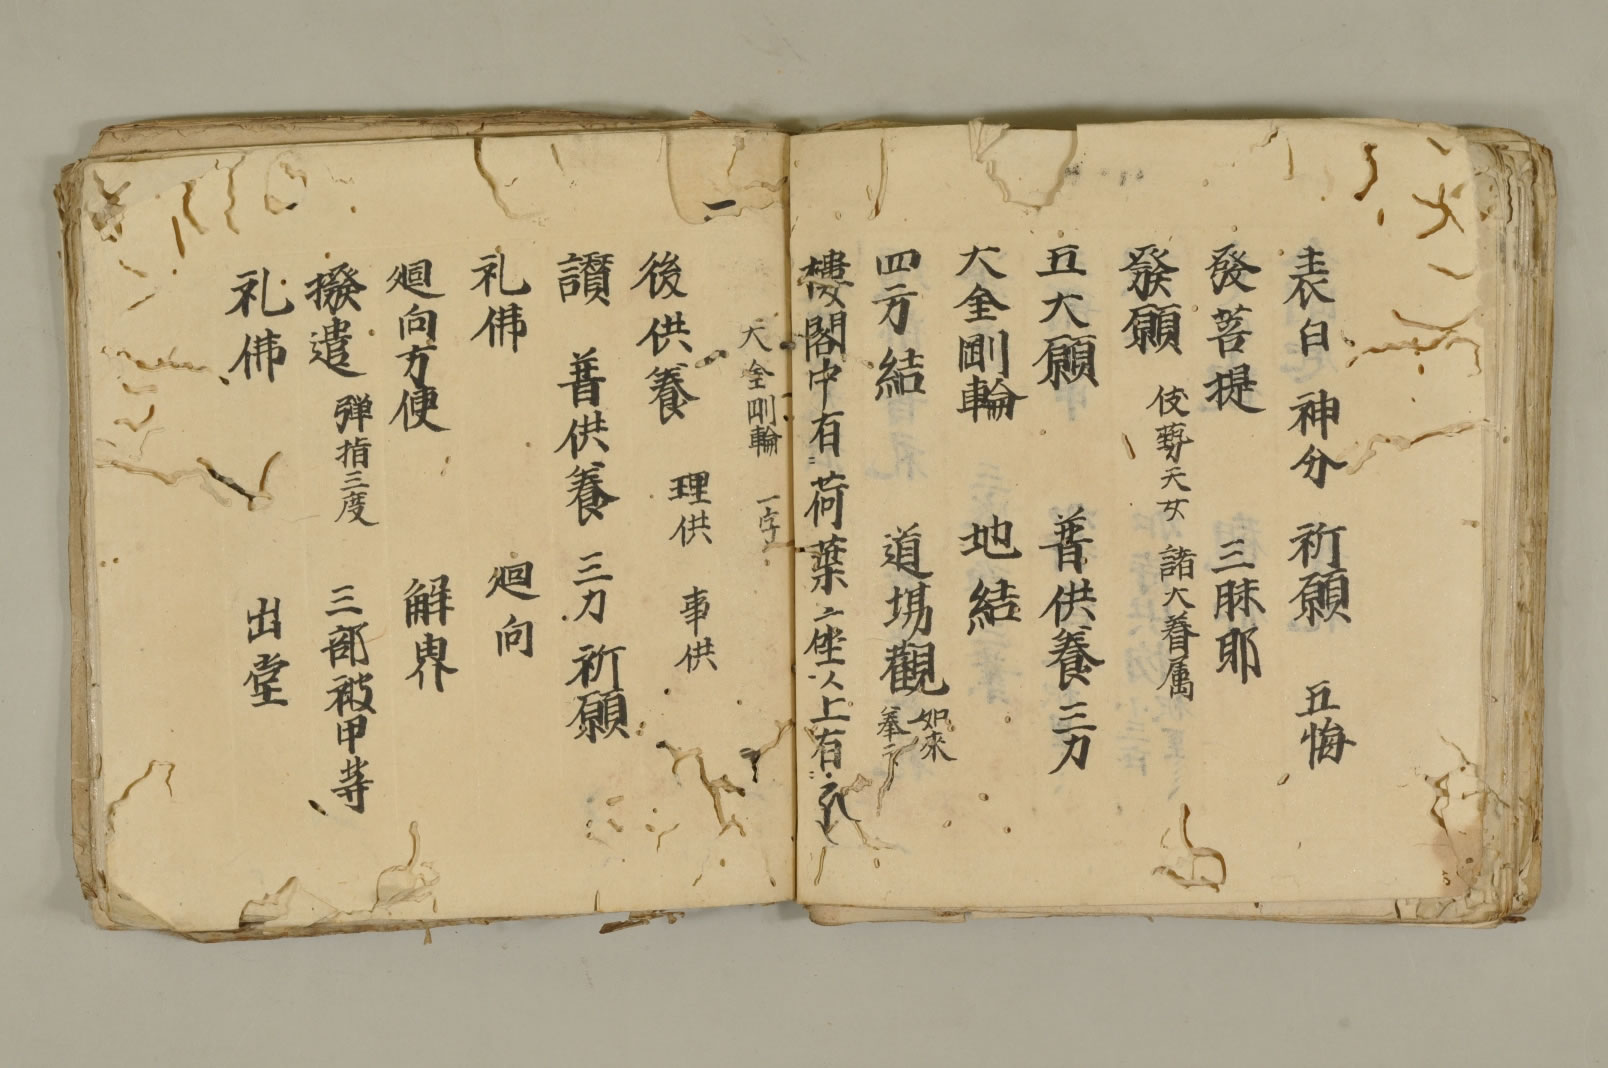 表白 神分 祈願 五悔
發菩提 三昧耶
發願 伎藝天女 諸大眷属
五大願 普供養 三力
大金剛輪 地結
四方結 道場觀 如來
拳印
樓閣中有荷葉座上有
大金剛輪 一字
後供養 理供 事供
讃 普供養 三力 祈願
礼佛 廻向
廻向方便 解界
撥遣 弾指三度 三部被甲等
礼佛 出堂